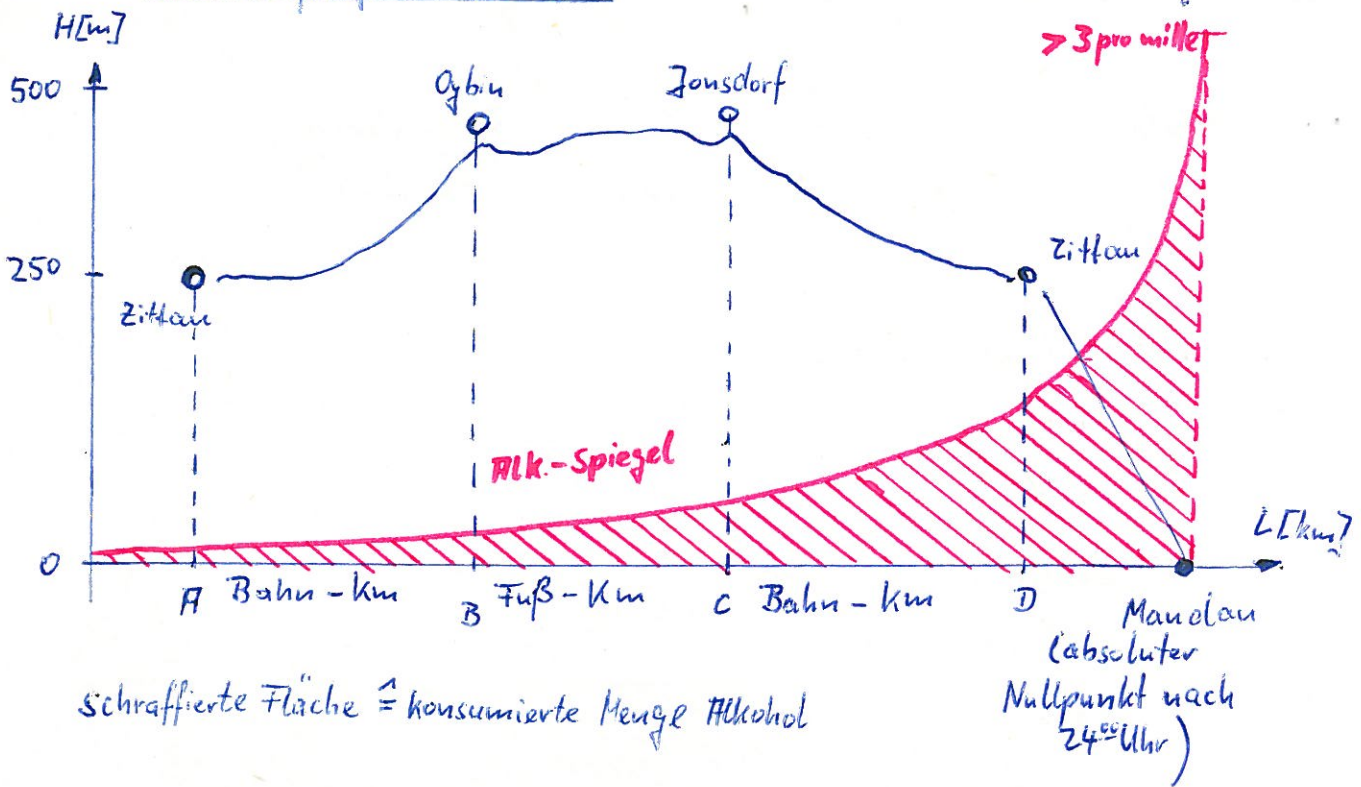 H[m]
> 3 pro mille
500
Oybin
Jonsdorf
250
Zittau
Zittau
Alk.-Spiegel
0
L[km]
A Bahn-Km B Fuß-Km C Bahn-Km D
Mandau
(absoluter
Nullpunkt nach
24⁰⁰ Uhr)
schraffierte Fläche ≙ konsumierte Menge Alkohol